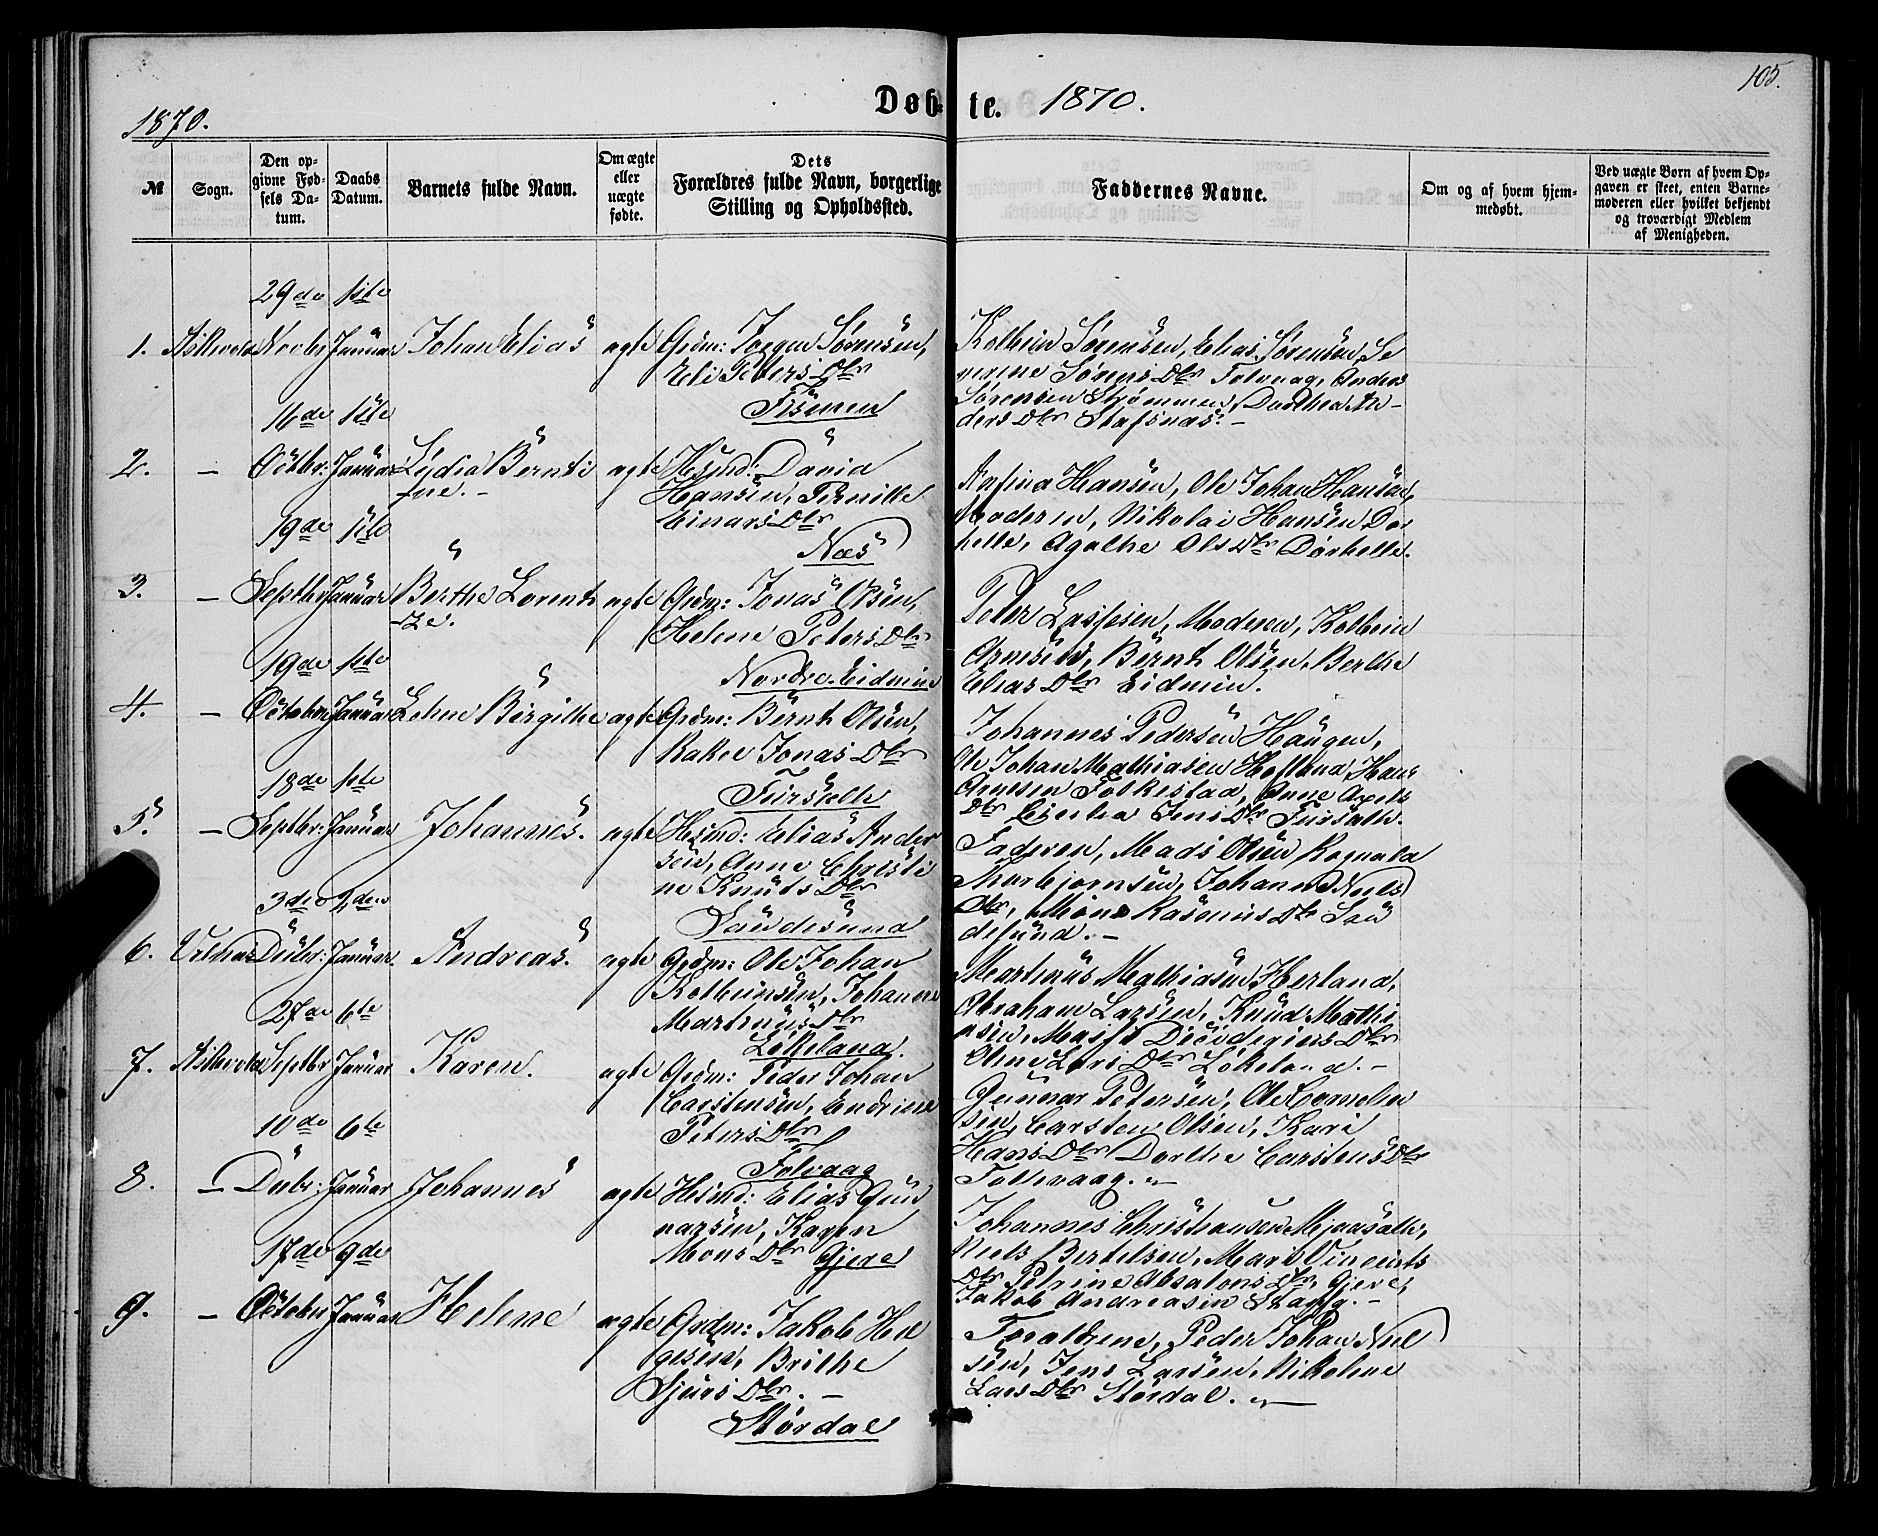 105.
1870.
Døb-te. 1870.
№
Sogn.
Den op-
givne Fød-
sels Da-
tum.
Daabs
Datum.
Barnets fulde Navn.
Om ægte
eller
uægte
fødte.
Dets
Forældres fulde Navn, borgerlige
Stilling og Opholdssted.
Faddernes Navne.
Om og af hvem hjem-
medøbt.
Ved uægte Børn af hvem Op-
gaven er skeet, enten Barne-
moderen eller hvilket bekjendt
og troværdigt Medlem
af Menigheden.
29de 1ste
1. Askevold Novbr Januar Johan Elias ægte Grdm: Sørensen,
Eli Peters Dtr
Kolbein Sørensen, Elias Sørensen, Se
verine Sørens Dtr Folvaag, Anders
Sørensen Strømmen, Dorthea An-
ders Dtr Stafsnæs. -
16de 1ste
2. - Octbr: Januar Lydia Bernti
ne. - ægte Hsmd: David
Hansen, Pernille
Einars Dtr
Næs
Hansen, Ole Johan Hansen,
Moderen, Nikolai Hansen
Agathe Ols Dtr
19de 1ste
3. - Septbr Januar Berthe Lorent
ze. ægte Grdm: Jonas Olsen,
Helene Peters Dtr
Nordre Eidmin
Peter Lassesen, Moderen, Kolbein
Arnesen, Bernt Olsen, Berthe
Elias Dtr Eidmin.
19de 1ste
4. - October Januar Lene Birgithe ægte Grdm: Bernt Olsen,
Rakel Jonas Dtr
Johannes Pedersen Haugen,
Ole Johan Mathiasen Hofland, Hans
Arnesen Folkestad, Anne Axels
Dtr Jens Dtr
18de 1ste
5. - Septbr: Januar Johannes. ægte Hsmd: Elias Ander
sen, Anne Christi
ne Knuts Dtr
Saudesund
Faderen, Mads Olsen, Rognald
Thorbjørnsen, Johanne Niels
Dtr, Rasmus Dtr Sau
desund. -
3de 2den
6. Vilnæs Decbr: Januar. Andreas. ægte Grdm: Ole Johan
Kolbeinsen, Johanne
Martinus Dtr
Lökeland.
Martinus Mathiasen Herland,
Abraham Larsen, Knud Mathi
asen, Dtr
Lars Dtr Lökeland. -
27de 6te
7. Askevold Septbr Januar Karen. ægte Grdm: Peder Johan
Carstensen, Endrine
Peters Dtr
Folvaag
Gunnar Petersen, Ole Cornelius
sen, Carsten Olsen, Kari
Hans Dtr Dorthe Carstens Dtr
10de 6te
8. - Decbr: Januar Johannes ægte Hsmd: Elias Gun
narsen, Karen
Mons Dtr Gjere
Johannes Christiansen
Niels Bertelsen, Marit Vincents
Dtr Petrine Absalons Dtr, Gjere,
Jakob Andreasen Stang. -
17de 9de
9. - October Januar Helene ægte Grdm: Jakob Hel
gesen, Brithe
Sjurs Dtr. -
Stördal
Forældrene, Peder Johan Niel
sen, Jens Larsen, Nikoline
Lars Dtr Stördal.